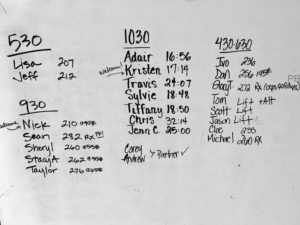 530
Lisa 207
Jeff 212
930
Nick 210
Sean 232 RX
Sheryl 260
Stacy A 262
Taylor 276
1030
Adair 16:56
Kristen 17:14
Travis 24:07
Sylvie 18:48
Tiffany 18:50
Chris 32:14
Jenn C. 25:00
Corey
Andrew > Partner ✓
430-630
Ivo 236
Dan 256
272 RX
Tom Lift + Att
Scott Lift
Jason Lift
Cloe 233
Michael RX
PR